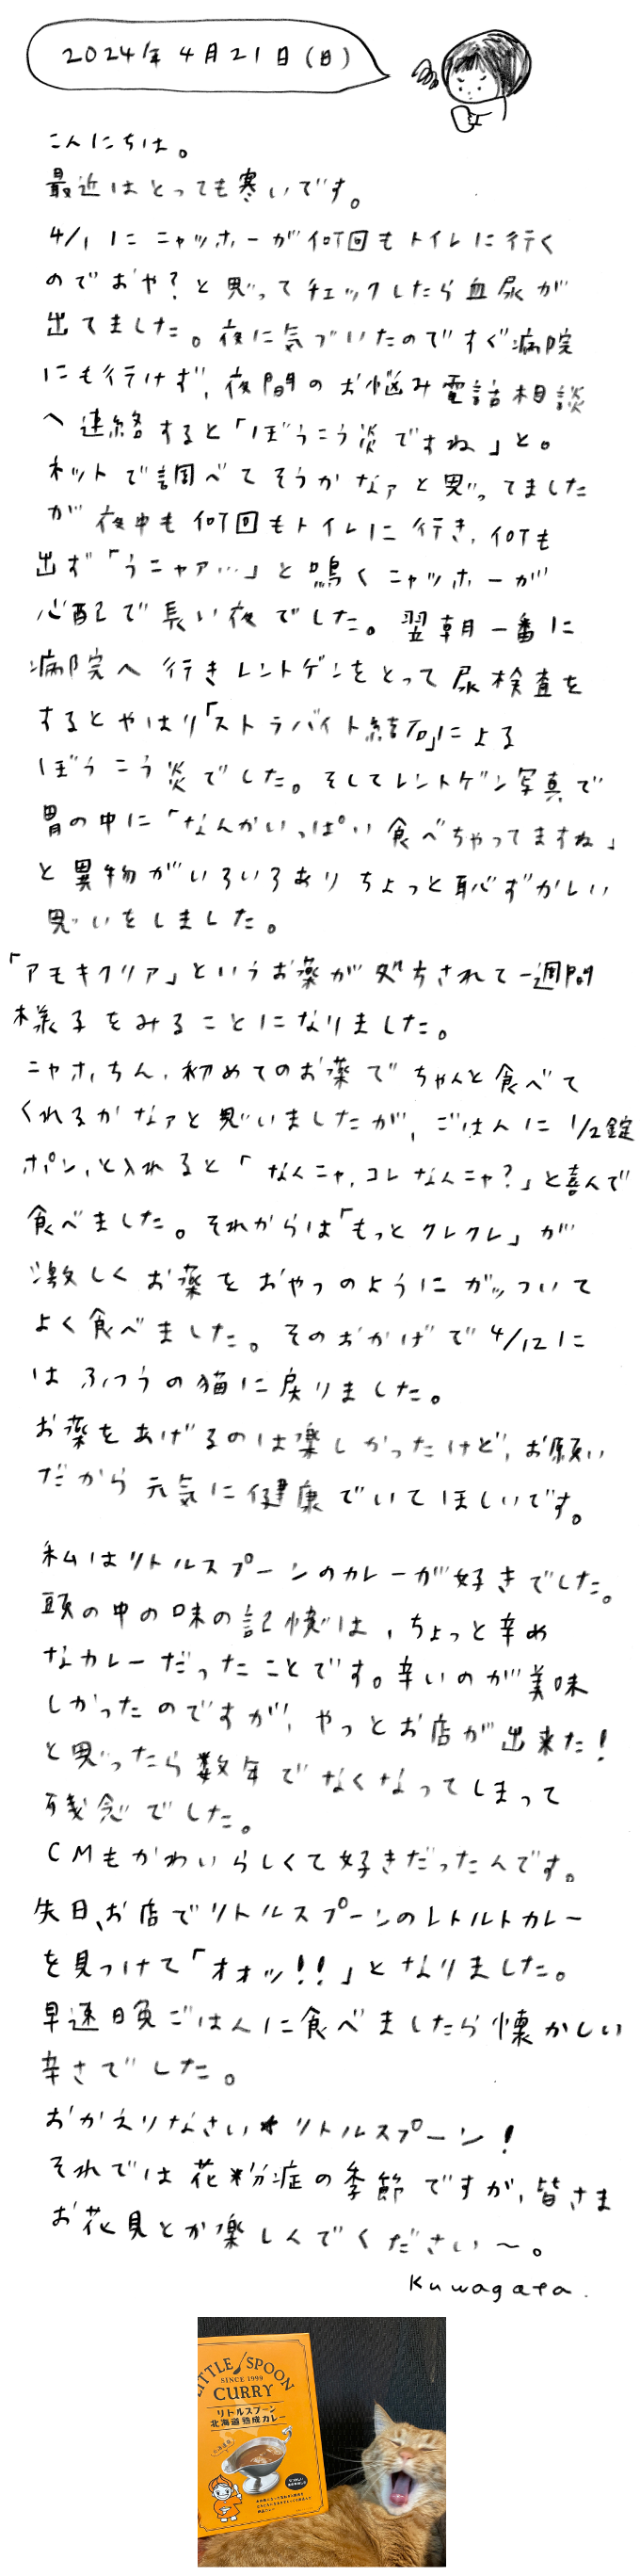 2024年4月21日(日)
こんにちは。
最近はとっても寒いです。
4/1にニャッホーが何回もトイレに行く
のでおや?と思ってチェックしたら血尿が
出てました。夜に気づいたのですぐ病院
にも行けず、夜間のお悩み電話相談
へ連絡すると「ぼうこう炎ですね」と。
ネットで調べてそうかなァと思ってました
が夜中も何回もトイレに行き、何も
出ず「うニャァ…」と鳴くニャッホーが
心配で長い夜でした。翌朝一番に
病院へ行きレントゲンをとって尿検査を
するとやはり「ストラバイト結石」による
ぼうこう炎でした。そしてレントゲン写真で
胃の中に「なんかいっぱい食べちゃってますね」
と異物がいろいろありちょっと恥ずかしい
思いをしました。
「アモキクリア」というお薬が処方されて一週間
様子をみることになりました。
ニャホちん、初めてのお薬でちゃんと食べて
くれるかなァと思いましたが、ごはんに1/2錠
ポン、と入れると「なんニャ、コレなんニャ?」と喜んで
食べました。それからは「もっとクレクレ」が
激しくお薬をおやつのようにガッついて
よく食べました。そのおかげで4/12に
はふつうの猫に戻りました。
お薬をあげるのは楽しかったけど、お願い
だから元気に健康でいてほしいです。
私はリトルスプーンのカレーが好きでした。
頭の中の味の記憶は、ちょっと辛め
なカレーだったことです。辛いのが美味
しかったのですが、やっとお店が出来た!
と思ったら数年でなくなってしまって
残念でした。
CMもかわいらしくて好きだったんです。
先日、お店でリトルスプーンのレトルトカレー
を見つけて「オオッ!!」となりました。
早速晩ごはんに食べましたら懐かしい
辛さでした。
おかえりなさい★リトルスプーン!
それでは花粉症の季節ですが、皆さま
お花見とか楽しんでください〜。
Kuwagata.
LITTLE SPOON
SINCE 1990
CURRY
リトルスプーン
北海道熟成カレー